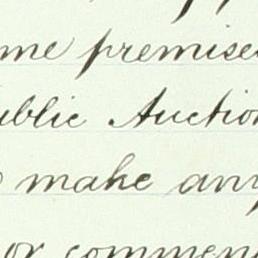 me premises
ublic Auction
make any
or commen